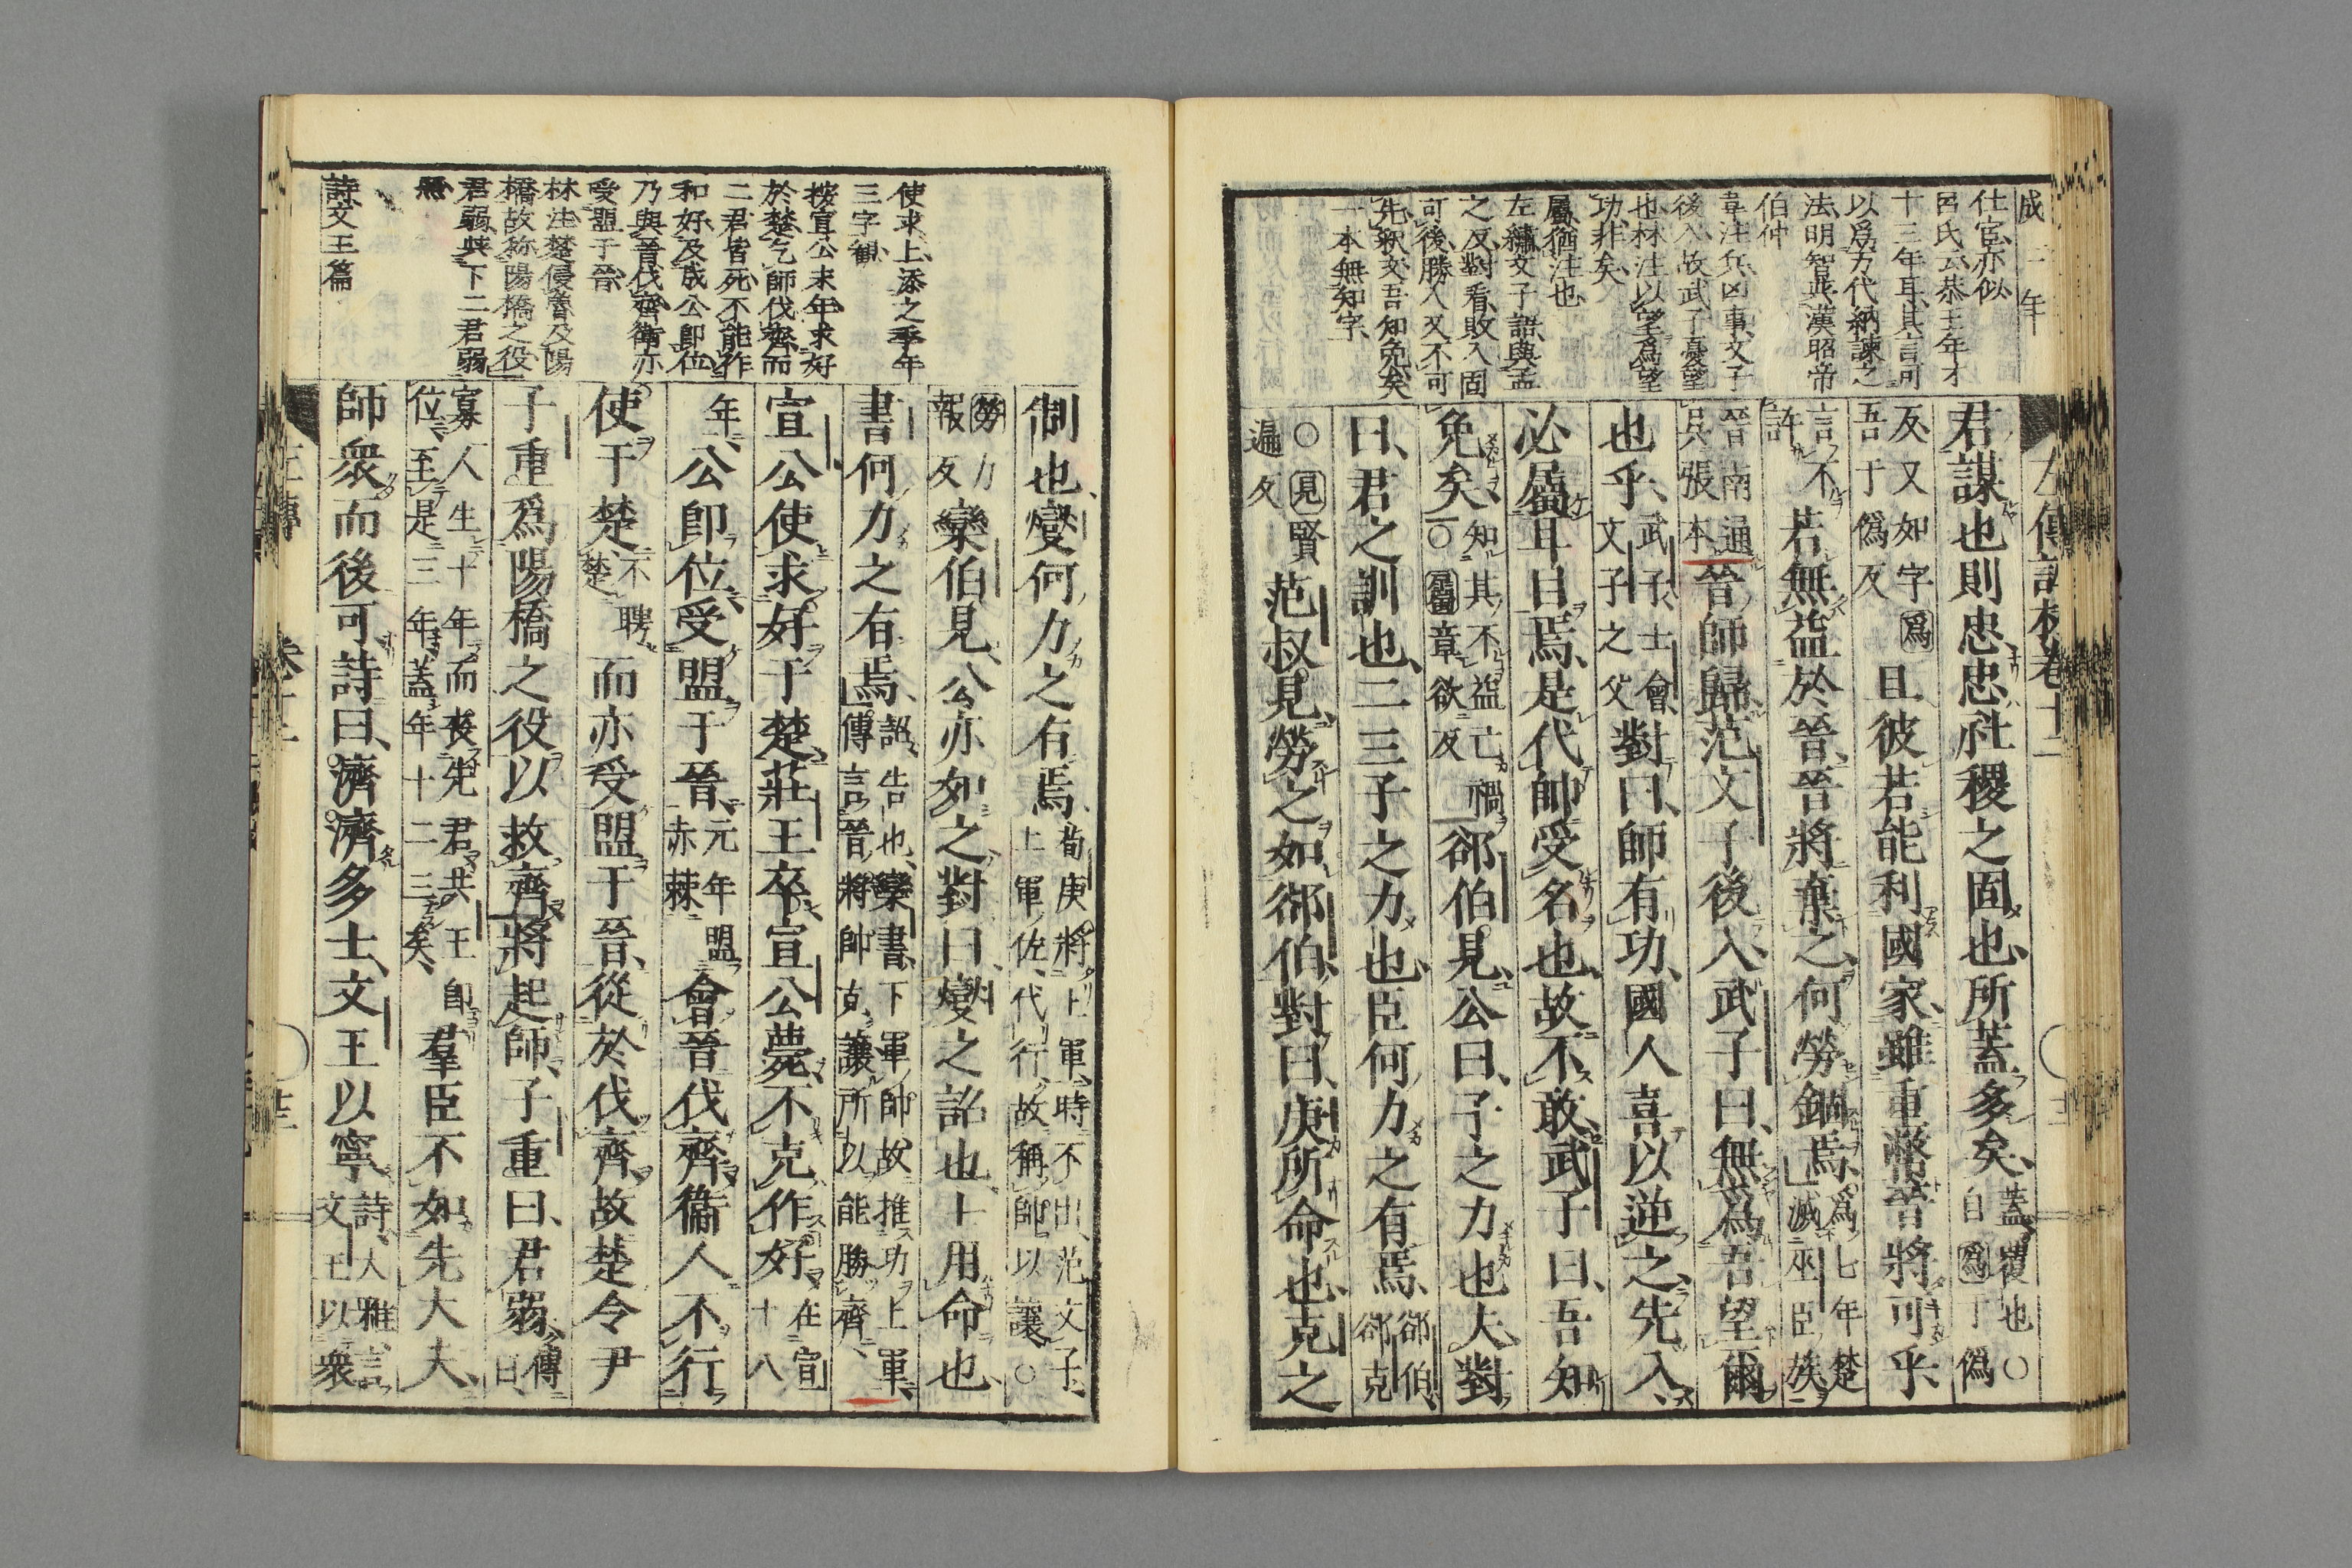 成二年
仕官亦似
呂氏云恭王年才
十三年耳其言可
以爲万代納諫之
法明智與漢昭帝
伯仲
韋注兵凶事文子
後入故武子憂望
也林注以望爲望
功非矣
屬猶注也
左繡文子語與孟
之反對看敗入固
可後勝入又不可
先釈文吾知免矣
一本無知字
左傳記校卷十二
君謀也則忠忠社稷之固也所蓋多矣蓋覆也○自爲于僞
反又如字爲吾于僞反且彼若能利國家雖重幣晉將可乎
言不許若無益於晉晉將棄之何勞錮焉爲七年楚滅巫臣族
晉南通吳張本晉師歸范文子後入武子曰無爲吾望爾
也乎武子士會文子之父對曰師有功國人喜以逆之先入
必屬耳目焉是代帥受名也故不敢武子曰吾知
免矣知其不益己禍○屬章欲反郤伯見公曰子之力也夫對
曰君之訓也二三子之力也臣何力之有焉郤伯郤克
○見賢遍反范叔見勞之如郤伯對曰庚所命也克之
制也燮何力之有焉荀庚將上軍時不出范文子上軍佐代行故稱帥以讓○
勞力報反欒伯見公亦如之對曰燮之詔也士用命也
書何力之有焉詔告也欒書下軍帥故推功上軍傳言晉將帥克讓所以能勝齊
宣公使求好于楚莊王卒宣公薨不克作好在宣十八
年公即位受盟于晉元年盟赤棘會晉伐齊衞人不行
使于楚不聘楚而亦受盟于晉從於伐齊故楚令尹
子重爲陽橋之役以救齊將起師子重曰君弱傳曰
寡人生十年而喪先君共王即位至是三年蓋年十二三矣羣臣不如先大夫
師衆而後可詩曰濟濟多士文王以寧詩大雅言文王以衆
使求上添之季年
三字観
按宣公末年求好
於楚乞師伐齊而
二君皆死不能作
和好及成公即位
乃與晉伐齊衛亦
受盟于晉
林注楚侵魯及陽
橋故称陽橋之役
君弱與下二君弱
照
詩文王篇
左傳
卷十二